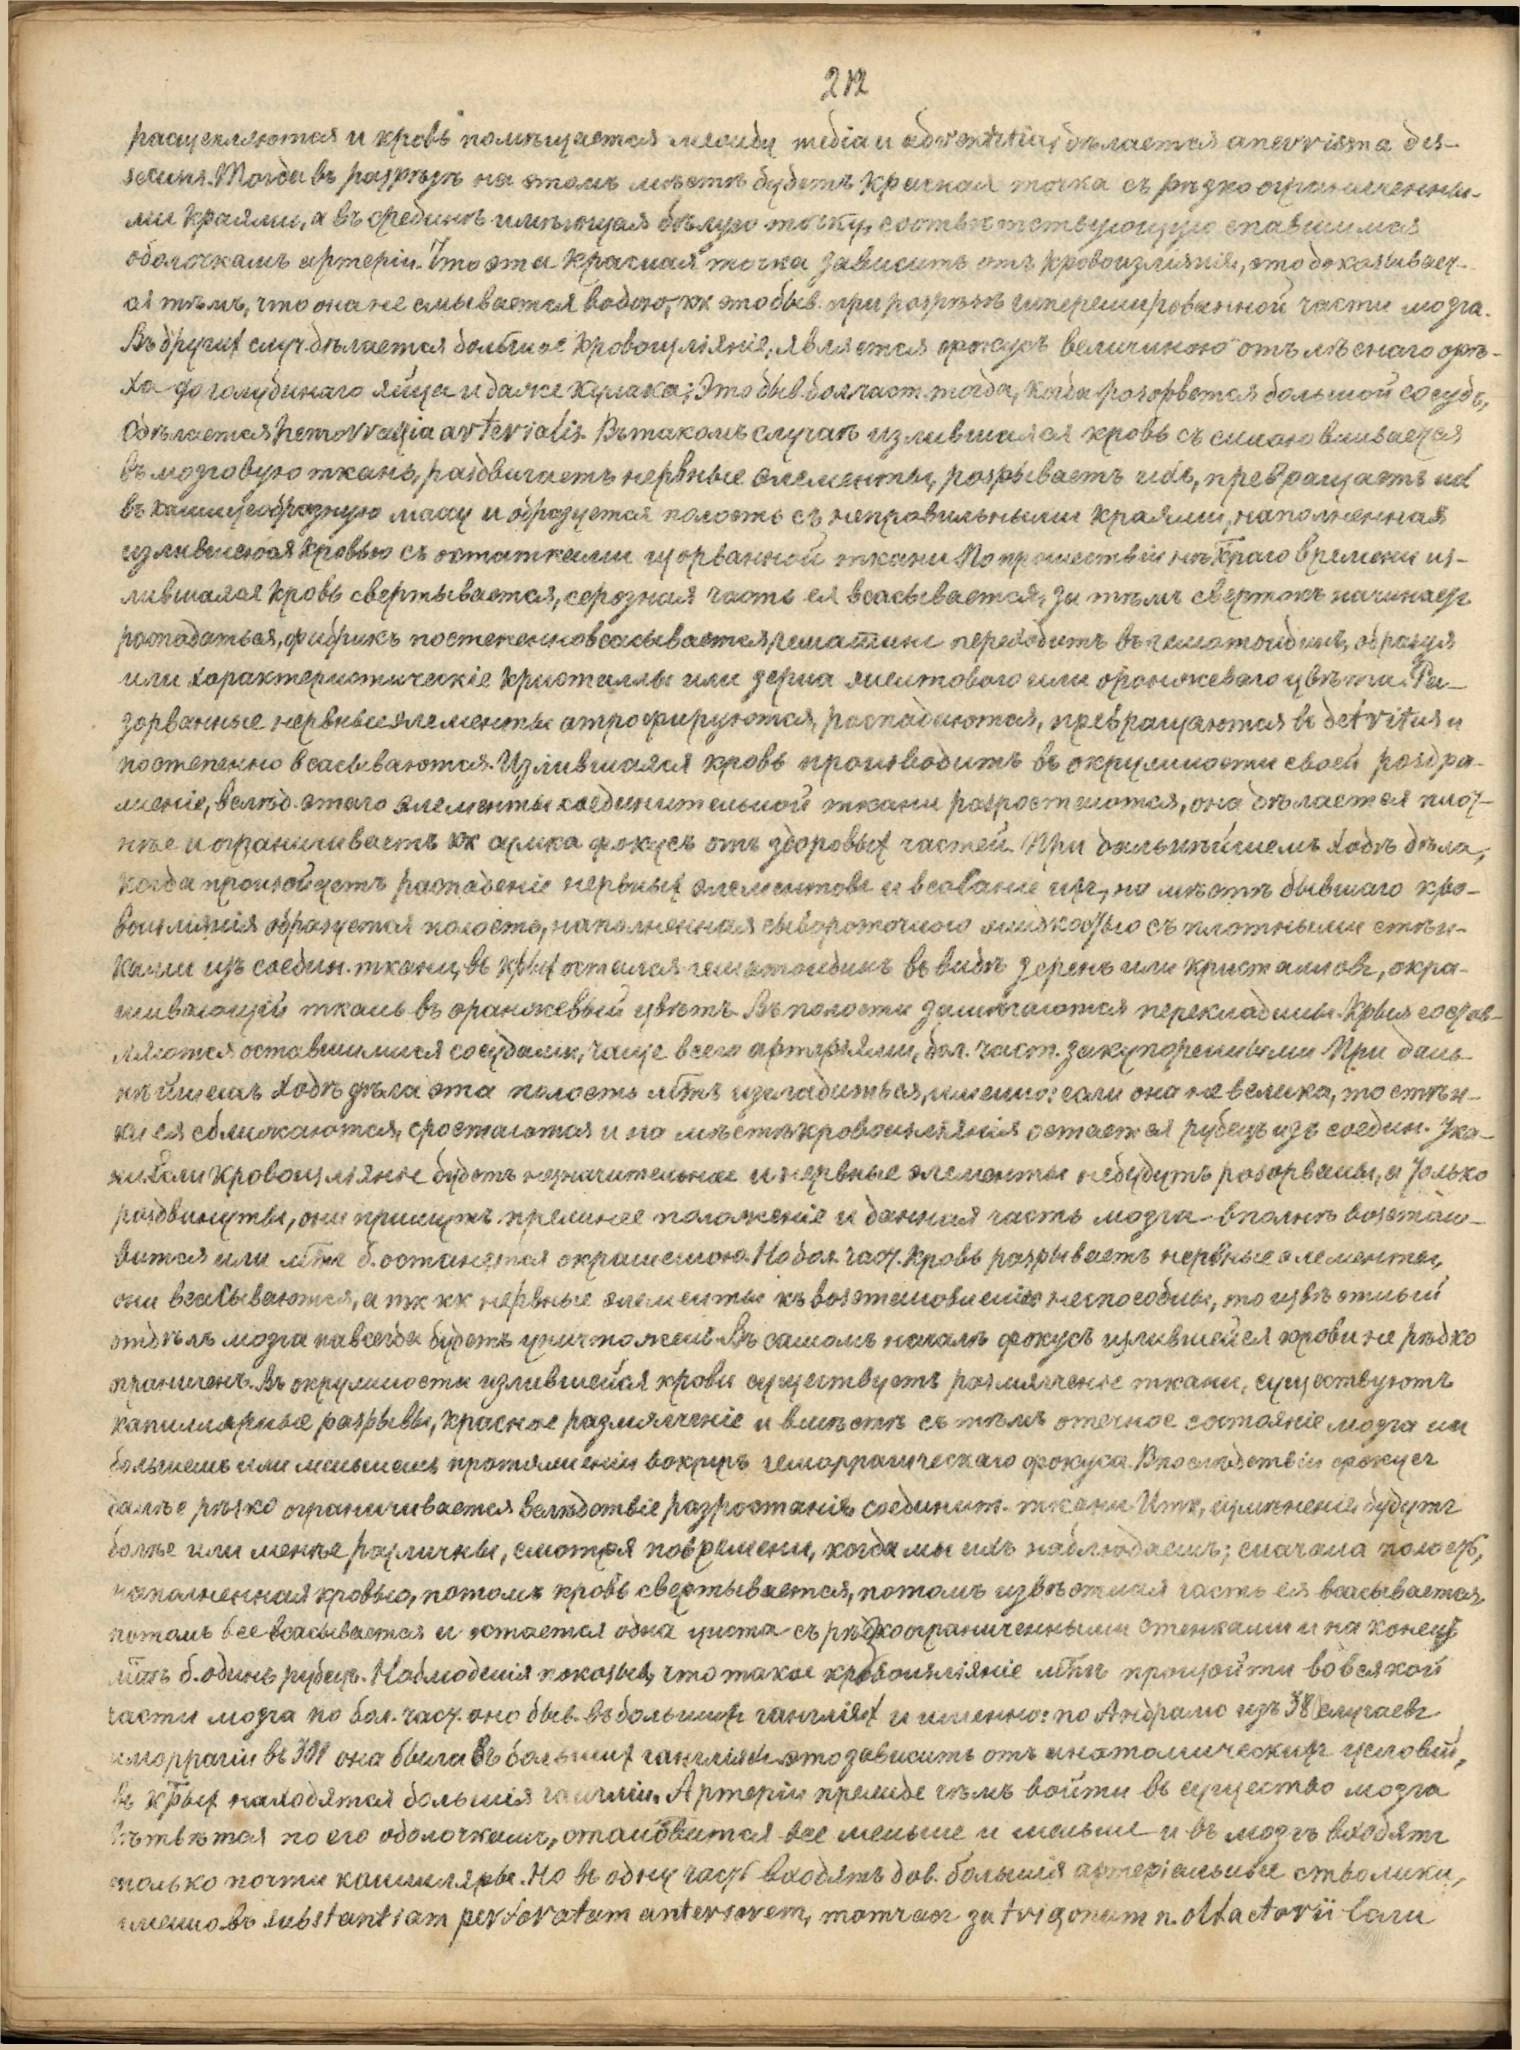 212
расщепляются и кровь помѣщается между media и adventitia, дѣлается anevrisma des-
secans. Тогда въ разрѣзѣ на этомъ мѣстѣ будетъ красная точка съ рѣзко ограниченны-
ми краями, а въ срединѣ имѣющая бѣлую точку, соотвѣтствующую спавшимся
оболочкамъ артеріи. Что эта красная точка зависитъ отъ кровоизліянія, это доказывает-
ся тѣмъ, что она не смывается водою, кк это быв. при разрѣзѣ гиперемированной части мозга.
Въ другихъ случ. дѣлается большое кровоизліяніе, является фокусъ величиною отъ лѣснаго орѣ-
ха до голубинаго яйца и даже кулака; Это быв. бол. част. тогда, когда разорвется большой сосудъ,
сдѣлается hemorragia arterialis. Въ такомъ случаѣ излившаяся кровь съ силою вливается
въ мозговую ткань, раздвигаетъ нервные элементы, разрываетъ ихъ, превращаетъ их
въ кашицеобразную массу и образуется полость съ неправильными краями, наполненная
излившеюся кровью съ остатками изорванной ткани По прошествіи нѣктраго времени из-
лившаяся кровь свертывается, серозная часть ея всасывается, за тѣмъ свертокъ начинает
распадаться, фибринъ постепенно всасывается, гематинъ переходитъ въ гематоидинъ, образуя
или характеристическіе кристаллы или зерна желтоваго или оранжеваго цвѣта. Ра-
зорванные нервные элементы атрофируются, распадаются, превращаются въ detritus и
постепенно всасываются. Излившаяся кровь производитъ въ окружности своей раздра-
женіе, вслѣд. этаго элементы соединительной ткани разростаются, она дѣлается плот-
нѣе и ограничиваетъ кк фокусъ отъ здоровых частей. При дальнѣйшемъ ходѣ дѣла,
когда произойдетъ распаденіе нервных элементовъ и всасваніе ихъ, на мѣстѣ бывшаго кро-
воизліянія образуется полость, наполненная сывороточною жидкостью съ плотными стѣн-
ками изъ соедин. ткани, въ ктрых остался гематоидинъ въ видѣ зеренъ или кристаловъ, окра-
шивающій ткань въ оранжевый цвѣтъ. Въ полости замѣчаются перекладины. Крыя состав-
ляются оставшимися сосудами, чаще всего артеріями, бол. част. закупоренными При даль-
нѣйшемъ ходѣ дѣла эта полость мтъ изгладиться, именно: если она не велика, то стѣн-
ки ея сближаются, сростаются и на мѣстѣ кровоизліянія остается рубецъ изъ соедин. тка-
ни. Если кровоизліяніе будетъ незначительное и нервные элементы не будутъ разорваны, а только
раздвинуты, они примутъ прежнее положеніе и данная часть мозга вполнѣ возстано-
вится или мтъ б. останется окрашенною. Но бол. част. кровь разрываетъ нервные элементы,
они всасываются, а тк кк нервные элементы къ возстановленію неспособны, то извѣстный
отдѣлъ мозга навсегда будетъ уничтоженъ. Въ самомъ началѣ фокусъ излившейся крови не рѣзко
ограниченъ. Въ окружности излившейся крови существуетъ размягченіе ткани, существуютъ
капиллярные разрывы, красное размягченіе и вмѣстѣ съ тѣмъ отечное состояніе мозга на
большемъ или меньшемъ протяженіи вокругъ геморрагическаго фокуса. Впослѣдствіи фокусъ
далѣе рѣзко ограничивается вслѣдствіе разростанія соединит. ткани Итк, измѣненія будутъ
болѣе или менѣе различны, смотря по времени, когда мы ихъ наблюдаемъ; сначала полость,
наполненная кровью, потомъ кровь свертывается, потомъ извѣстная часть ея всасывается,
потомъ все всасывается и остается одна циста съ рѣзкоограниченными стенками и на конецъ
мтъ б. одинъ рубецъ. Наблюденія показыв., что такое кровоизліяніе мтъ произойти во всякой
части мозга но бол. част. оно быв. въ большихъ гангліях и именно: по Андралю изъ 38 случаевъ
геморрагіи въ она была въ большихъ гангліях это зависитъ отъ анатомическихъ условій,
въ ктрых находятся большія гангліи. Артеріи прежде чѣмъ войти въ существо мозга
вѣтвятся по его оболочкамъ, становятся все меньше и меньше и въ мозгъ входятъ
только почти капилляры. Но въ одну часть входятъ дов. большія артеріальные стволики,
именно въ substantiam perforatam anteriorem, тотчасъ за trigonum n. olfactorii Если